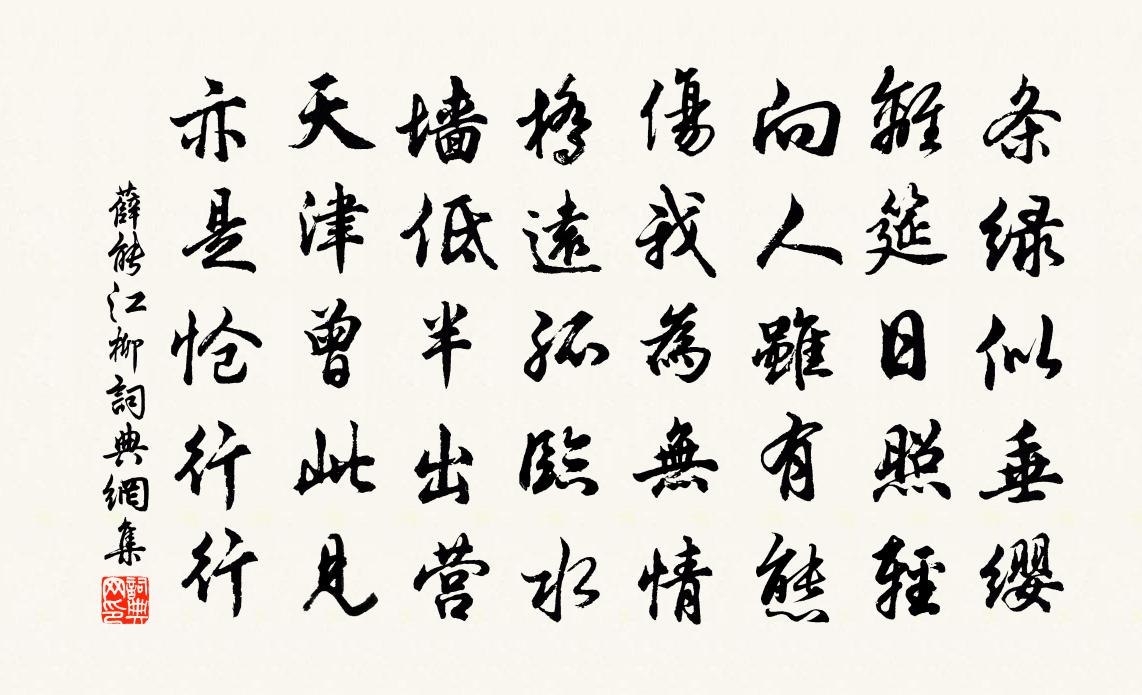 条绿似垂缨
離筵日照輕
向人雖有態
傷我為無情
橋遠孤臨水
墙低半出营
天津曾此見
亦是怆行行
薛能江柳詞典網集
詞典网印